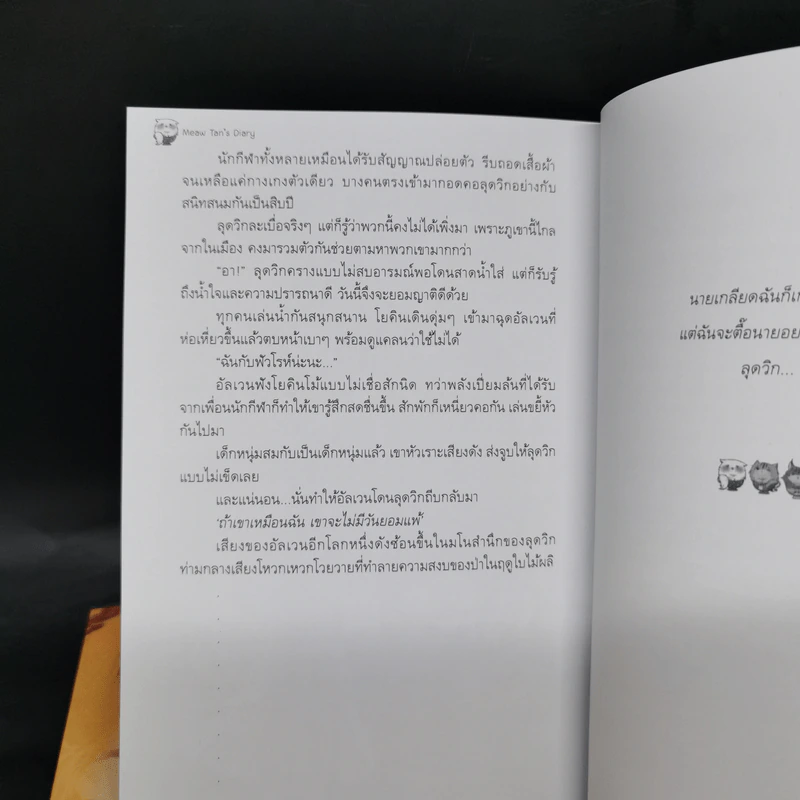 Meaw Tan's Diary
นักกีฬาทั้งหลายเหมือนได้รับสัญญาณปล่อยตัว รีบถอดเสื้อผ้า
จนเหลือแค่กางเกงตัวเดียว บางคนตรงเข้ามากอดคอลุดวิกอย่างกับ
สนิทสนมกันเป็นสิบปี
ลุดวิกละเบื่อจริงๆ แต่ก็รู้ว่าพวกนี้คงไม่ได้เพิ่งมา เพราะภูเขานี้ไกล
จากในเมือง คงมารวมตัวกันช่วยตามหาพวกเขามากกว่า
“อา!” ลุดวิกครางแบบไม่สบอารมณ์พอโดนสาดน้ำใส่ แต่ก็รับรู้
ถึงน้ำใจและความปรารถนาดี วันนี้จึงจะยอมญาติดีด้วย
ทุกคนเล่นน้ำกันสนุกสนาน โยคินเดินดุ่มๆ เข้ามาฉุดอัลเวนที่
ห่อเหี่ยวขึ้นแล้วตบหน้าเบาๆ พร้อมดูแคลนว่าใช้ไม่ได้
“ฉันกับฟัวโรห์น่ะนะ...”
อัลเวนฟังโยคินโม้แบบไม่เชื่อสักนิด ทว่าพลังเปี่ยมล้นที่ได้รับ
จากเพื่อนนักกีฬาก็ทำให้เขารู้สึกสดชื่นขึ้น สักพักก็เหนี่ยวคอกัน เล่นขยี้หัว
กันไปมา
เด็กหนุ่มสมกับเป็นเด็กหนุ่มแล้ว เขาหัวเราะเสียงดัง ส่งจูบให้ลุดวิก
แบบไม่เข็ดเลย
และแน่นอน...นั่นทำให้อัลเวนโดนลุดวิกถีบกลับมา
‘ถ้าเขาเหมือนฉัน เขาจะไม่มีวันยอมแพ้’
เสียงของอัลเวนอีกโลกหนึ่งดังซ้อนขึ้นในมโนสำนึกของลุดวิก
ท่ามกลางเสียงโหวกเหวกโวยวายที่ทำลายความสงบของป่าในฤดูใบไม้ผลิ
นายเกลียดฉันก็
แต่ฉันจะตื๊อนายอย
ลุดวิก...